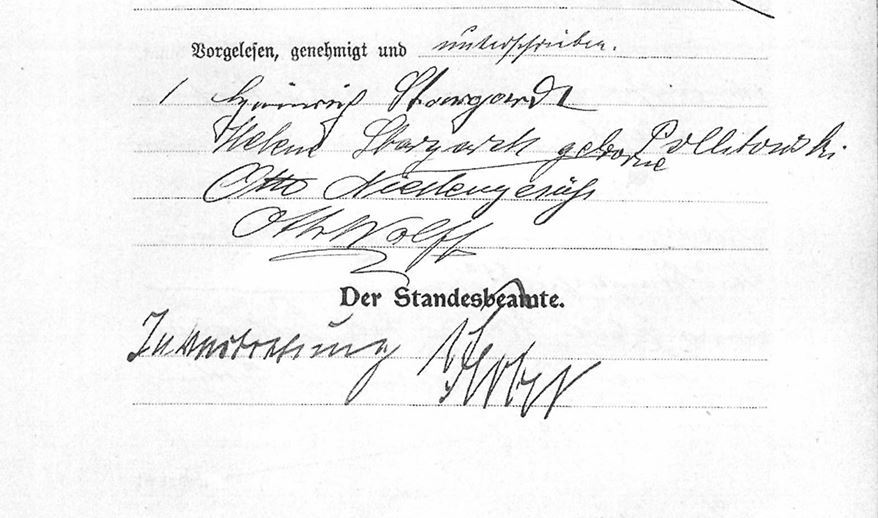 Vorgelesen, genehmigt und unterschrieben.
Heinrich Stargardt
Helene Stargardt geborene Pollekowski
Otto
Otto Wolff
Der Standesbeamte.
In Vertretung